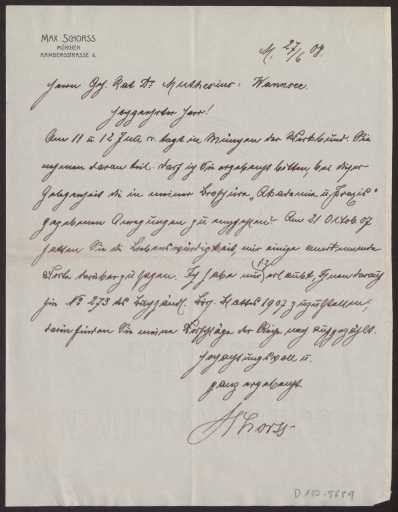 MAX SCHORSS
MÜNCHEN
RAMBERGSTRASSE 4.
M. 27/6 08.
Herrn Geh. Rat Dr. Muthesius. Wannsee.
Hochgeehrter Herr!
Am 11 u 12 Juli tagt in München der Werkbund. Sie
nehmen daran teil. Darf ich Sie ergebenst bitten, bei dieser
Gelegenheit die in meiner Broschüre „Akademie u. Praxis"
gegebenen Anregungen zu Am 21 Oktob. 07
hatten Sie die Liebenswürdigkeit, mir einige anerkennende
Worte darüber zu sagen. Ich habe mir erlaubt, Ihnen darauf
hin No 273 des 1907 zuzustellen,
darin finden Sie meine Vorschläge der Reihe nach aufgezählt.
Hochachtungsvoll u.
ganz ergebenst
Schorss
D 102-5659